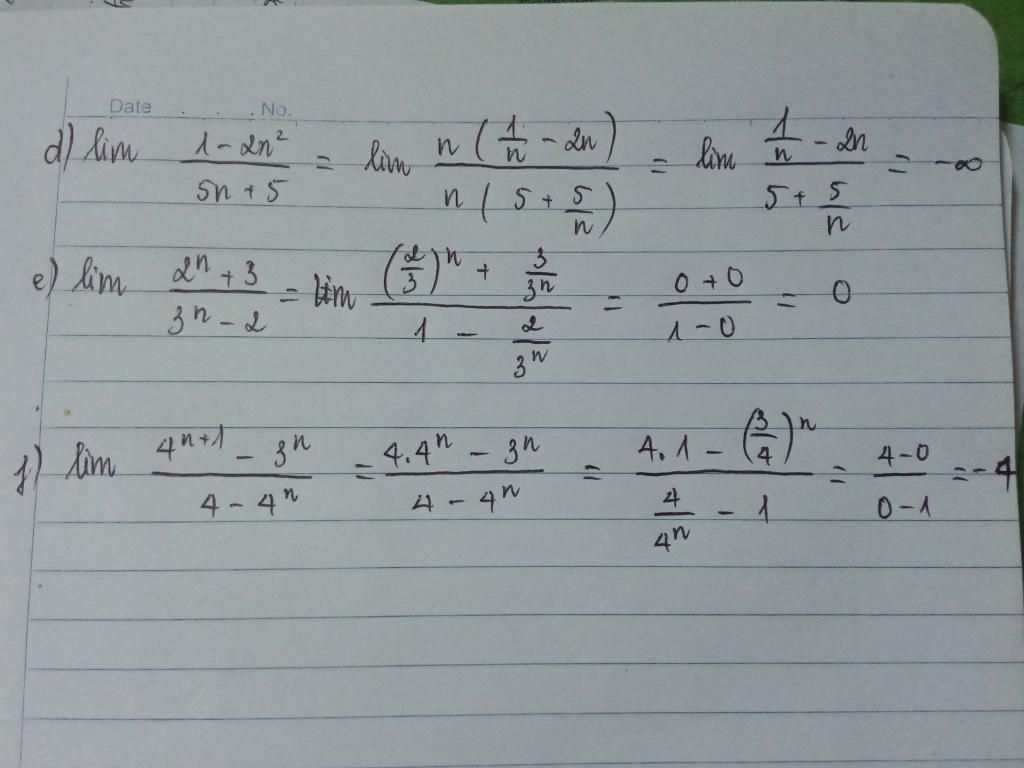 Date . . . . No.
d) lim (1 - 2n²)/(5n + 5) = lim (n(1/n - 2n))/(n(5 + 5/n)) = lim (1/n - 2n)/(5 + 5/n) = -∞
e) lim (2ⁿ + 3)/(3ⁿ - 2) = lim ((2/3)ⁿ + 3/3ⁿ)/(1 - 2/3ⁿ) = (0 + 0)/(1 - 0) = 0
f) lim (4ⁿ⁺¹ - 3ⁿ)/(4 - 4ⁿ) = (4.4ⁿ - 3ⁿ)/(4 - 4ⁿ) = (4.1 - (3/4)ⁿ)/(4/4ⁿ - 1) = (4 - 0)/(0 - 1) = -4